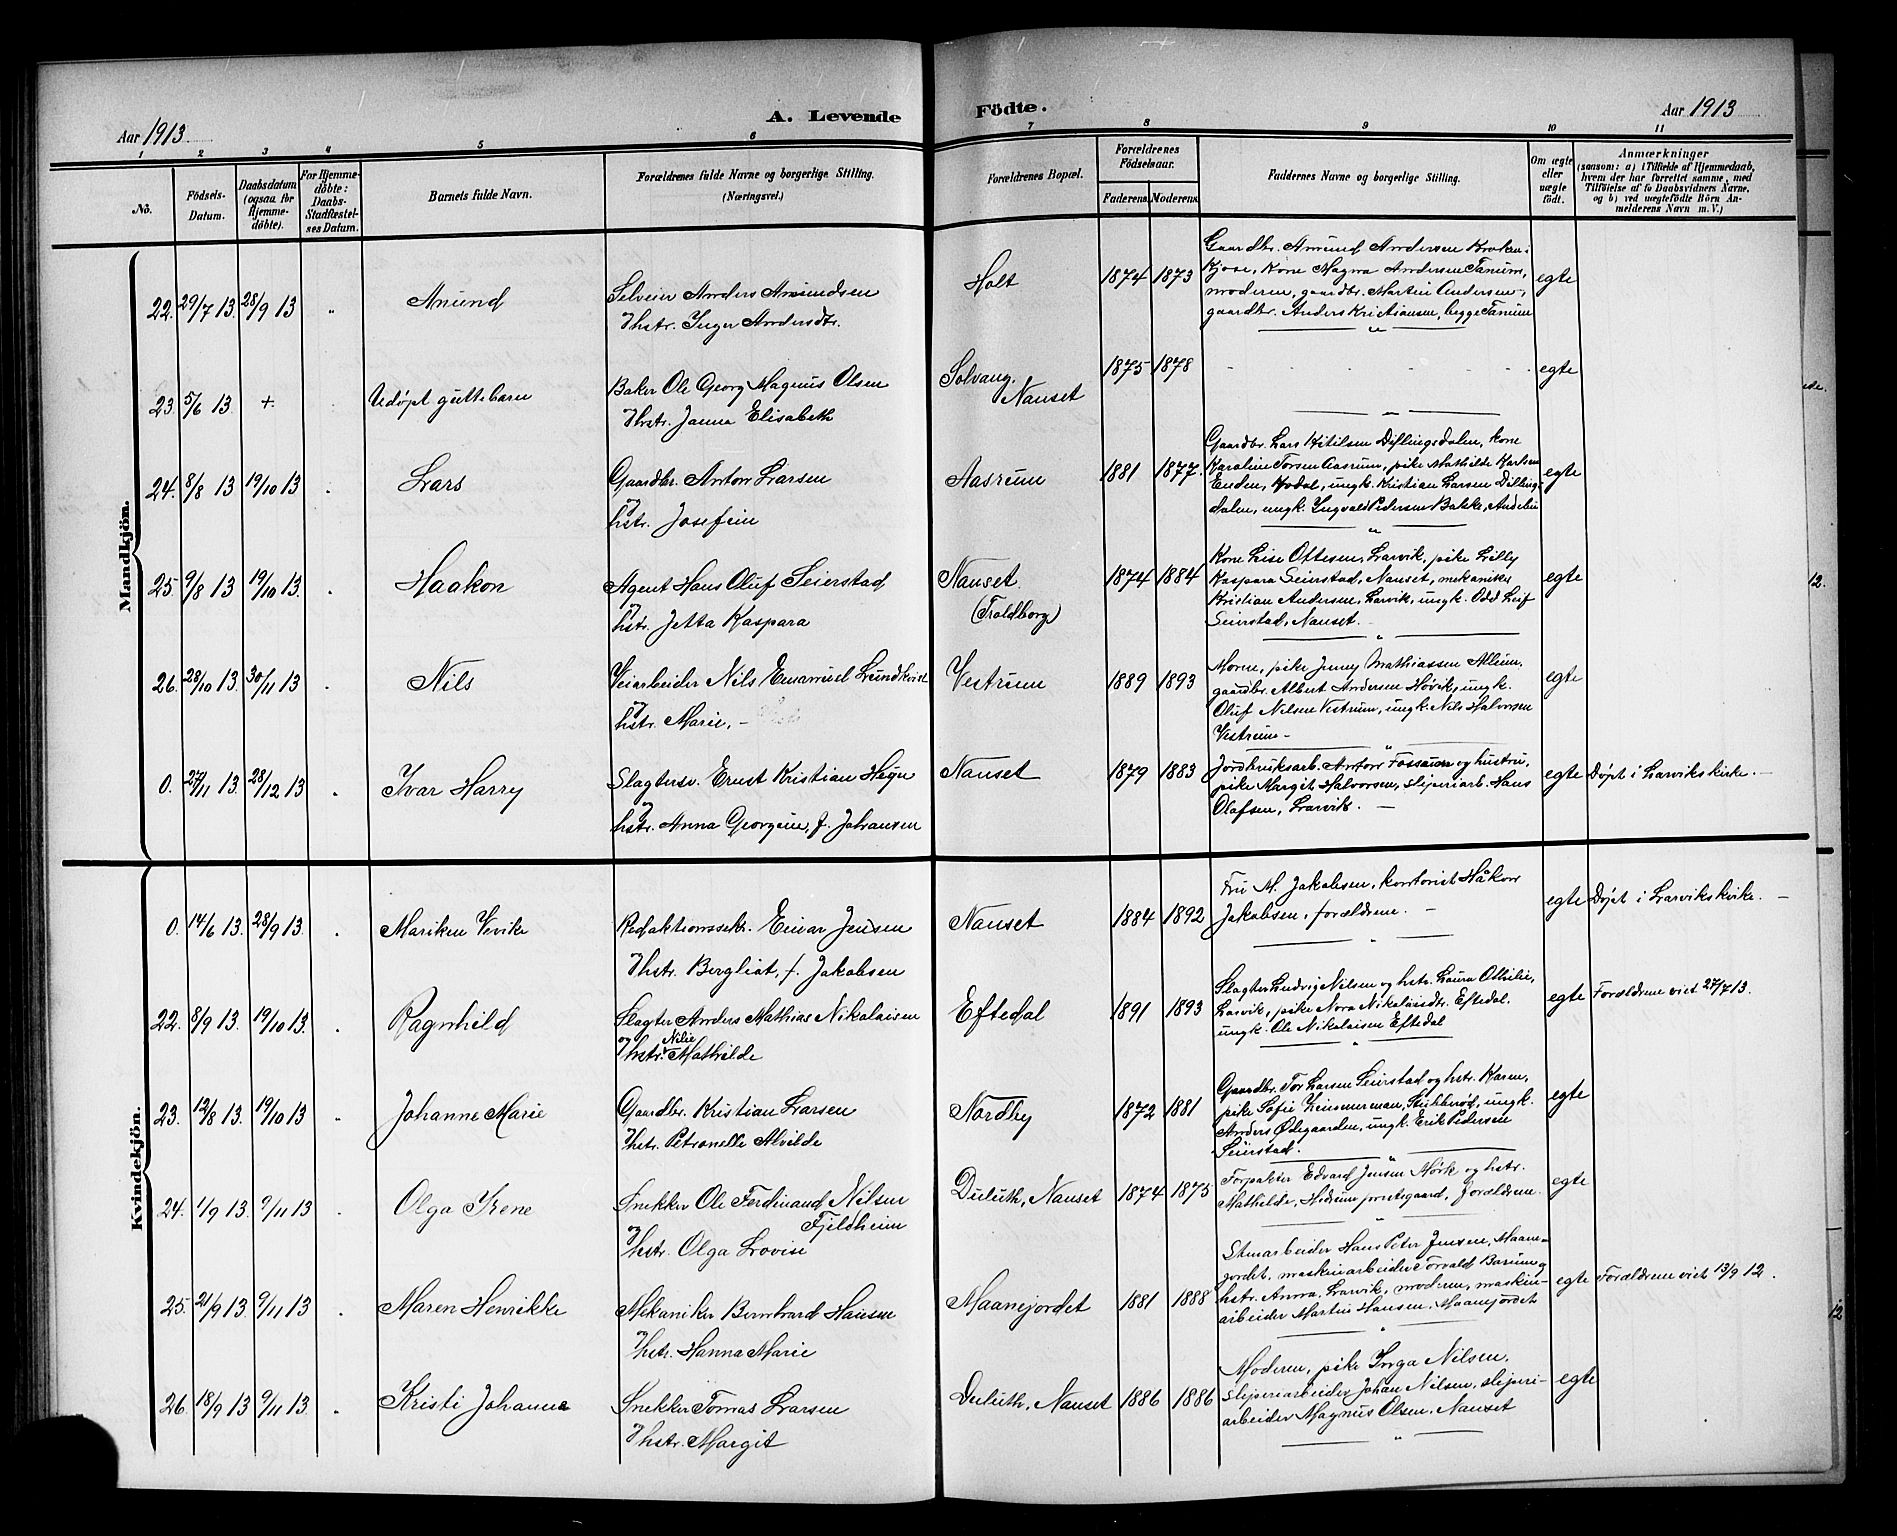 A. Levende Födte.
Aar 1913
Aar 1913
1 2 3 4 5 6 7 8 9 10 11
No.
Födsels-Datum.
Daabsdatum (ogsaa for Hjemmedöbte).
For Hjemmedöbte: Daabs-Stadfæstelses Datum.
Barnets fulde Navn.
Forældrenes fulde Navne og borgerlige Stilling.
(Næringsvei.)
Forældrenes Bopæl.
Forældrenes Födselsaar.
Faderens. Moderens.
Faddernes Navne og borgerlige Stilling.
Om ægte eller uægte födt.
Anmærkninger
(saasom: a) i Tilfælde af Hjemmedaab, hvem der har forrettet samme, med Tilföielse af to Daabsvidners Navne. og b) ved uægtefödte Börn Anmelderens Navn m. V.)
Mandkjön.
22. 29/7 13. 28/9 13 " Anund
Selveier Anders Anundsen
Hstr. Inger Andersdtr.
Holt 1874 1873
Gaardbr. Amund Andersen
Kjose, Kone Magna Andersen Tanum,
moderen, gaardbr. Martin Andersen,
gaardbr. Anders Kristiansen, begge Tanum
egte
23. 5/6 13. +. Udøpt guttebarn
Baker Ole Georg Magnus Olsen
Hstr. Janna Elisabeth
Solvang, Nanset
1875 1878
egte
24. 8/8 13 19/10 13 Lars
Gaardbr. Anton Larsen
og hstr. Josefine
Aasrum 1881 1877.
Gaardbr. Lars Kitilsen Diflingsdalen, kone
Karoline Torsen Aasrum, pike Mathilde Karlsen
Enden, Hvdal, ungk. Kristian Larsen Difling-
dalen, ungk. Ingvald Pedersen Bakke, Andebu
egte
25. 9/8 13 19/10 13. Haakon
Agent Hans Oluf Seierstad
og hstr. Jetta Kaspara
Nanset.
(Traldborg)
1874 1884
Kone Lise Oftesen, Larvik, pike Lilly
Kaspara Seierstad, Nanset, mekaniker
Kristian Andersen, Larvik, ungk. Odd Leif
Seierstad, Nanset.
egte
26. 28/10 13. 30/11 13 Nils
Veiarbeider Nils Emanuel Lundkvist
og hstr. Marie. -
Vestrum 1889 1893
Moren, pike Jenny Mathiassen Allum,
gaardbr. Albert Andersen Høvik, ungk.
Oluf Nilsen Vestrum, ungk. Nils Halvorsen
Vestrum -
egte
0. 27/11 13. 28/12 13 Ivar Harry
Slagtersv. Ernst Kristian Høyn
og hstr. Anna Georgine, f. Johansen
Nanset 1879 1883
Jordbruksarb. Anton Fossum og hustru,
pike Margit Halvorsen, sliperiarb. Hans
Olafsen, Larvik. -
egte Døpt i Larviks kirke. -
Kvindekjön.
0. 14/6 13. 28/9 13. Mariken Vivike
Redaktionssekr. Einar Jensen
Hstr. Bergliot, f. Jakobsen
Nanset 1884 1892
Fru M. Jakobsen, kontorist Håkon
Jakobsen, forældrene. -
egte Døpt i Larviks kirke. -
22. 8/9 13. 19/10 13. Ragnhild
Slagter Anders Mathias Nikolaisen
og Hstr. Nilie Mathilde
Eftedal 1891 1893
Slagter Ludvig Nilsen og hstr. Laura Othilie,
Larvik, pike Nora Nikolaisdtr. Eftedal.
ungk. Ole Nikolaisen Eftedal
egte Forældrene viet 27/7 13.
23. 12/8 13. 19/10 13. Johanne Marie
Gaardbr. Kristian Larsen
Hstr. Petronelle Alvilde
Nordby 1872 1881
Gaardbr. Tor Larsen Seierstad og hstr. Karen,
pike Sofie Zimmerman, Stubberød, ungk.
Anders Ødegaarden, ungk. Erik Pedersen
Seierstad.
egte
24. 1/9 13. 9/11 13 Olga Irene
Snekker Ole Ferdinand Nilsen
Fjeldheim
og Hstr. Olga Lovise
Duluth, Nanset 1874 1875
Forpakter Edvard Jensen Mørk og hstr.
Mathilde, Hedrum prestegaard, Forældrene.
egte
25. 21/9 13. 9/11 13 Maren Henrikke
Mekaniker Bernhard Hansen
Hstr. Hanna Marie
Maanejordet 1881 1888
Stenarbeider Hans Peter Jensen, Maane-
jordet, maskinarbeider Torvald Barum og
hstr. Anna, Larvik, moderen, maskin-
arbeider Martin Hansen, Maanejordet
egte Forældrene viet 13/9 12.
26. 18/9 13 9/11 13. Kristi Johanne
Snekker Tomas Larsen
Hstr. Margit
Duluth, Nanset 1886 1886
Moderen, pike Inga Nilsen,
sliperiarbeider Johan Nilsen, sliperi-
arbeider Magnus Olsen, Nanset
egte